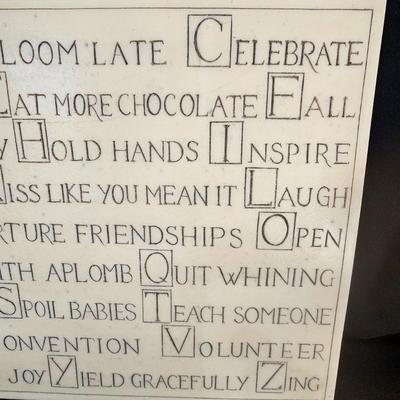 LOOM LATE CELEBRATE
EAT MORE CHOCOLATE FALL
HOLD HANDS INSPIRE
KISS LIKE YOU MEAN IT LAUGH
RTURE FRIENDSHIPS OPEN
ITH APLOMB QUIT WHINING
SPOIL BABIES TEACH SOMEONE
ONVENTION VOLUNTEER
JOY YIELD GRACEFULLY ZING